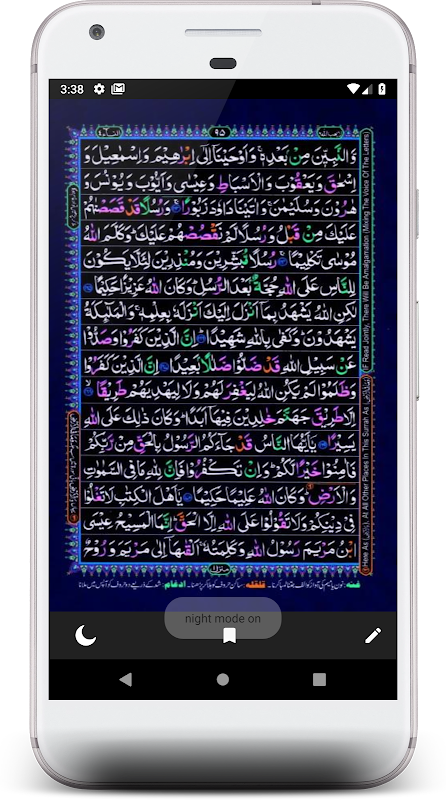 3:38
النسآء ٤
٩٥
لا يحب الله ٦
وَالنَّبِيّٖنَ مِنْۢ بَعْدِهٖ ۚ وَاَوْحَيْنَاۤ اِلٰۤى اِبْرٰهِيْمَ وَاِسْمٰعِيْلَ وَ
اِسْحٰقَ وَيَعْقُوْبَ وَالْاَسْبَاطِ وَعِيْسٰى وَاَيُّوْبَ وَيُوْنُسَ وَ
هٰرُوْنَ وَسُلَيْمٰنَ ۚ وَاٰتَيْنَا دَاوٗدَ زَبُوْرًا ۚ وَرُسُلًا قَدْ قَصَصْنٰهُمْ
عَلَيْكَ مِنْ قَبْلُ وَرُسُلًا لَّمْ نَقْصُصْهُمْ عَلَيْكَ ؕ وَكَلَّمَ اللّٰهُ
مُوْسٰى تَكْلِيْمًا ۚ رُسُلًا مُّبَشِّرِيْنَ وَمُنْذِرِيْنَ لِئَلَّا يَكُوْنَ
لِلنَّاسِ عَلَى اللّٰهِ حُجَّةٌۢ بَعْدَ الرُّسُلِ ؕ وَكَانَ اللّٰهُ عَزِيْزًا حَكِيْمًا
لٰكِنِ اللّٰهُ يَشْهَدُ بِمَاۤ اَنْزَلَ اِلَيْكَ اَنْزَلَهٗ بِعِلْمِهٖ ۚ وَالْمَلٰٓئِكَةُ
يَشْهَدُوْنَ ؕ وَكَفٰى بِاللّٰهِ شَهِيْدًا ؕ اِنَّ الَّذِيْنَ كَفَرُوْا وَصَدُّوْا
عَنْ سَبِيْلِ اللّٰهِ قَدْ ضَلُّوْا ضَلٰلًۢا بَعِيْدًا اِنَّ الَّذِيْنَ كَفَرُوْا
وَظَلَمُوْا لَمْ يَكُنِ اللّٰهُ لِيَغْفِرَ لَهُمْ وَلَا لِيَهْدِيَهُمْ طَرِيْقًا ۙ
اِلَّا طَرِيْقَ جَهَنَّمَ خٰلِدِيْنَ فِيْهَاۤ اَبَدًا ؕ وَكَانَ ذٰلِكَ عَلَى اللّٰهِ
يَسِيْرًا يٰۤاَيُّهَا النَّاسُ قَدْ جَآءَكُمُ الرَّسُوْلُ بِالْحَقِّ مِنْ رَّبِّكُمْ
فَاٰمِنُوْا خَيْرًا لَّكُمْ ؕ وَاِنْ تَكْفُرُوْا فَاِنَّ لِلّٰهِ مَا فِى السَّمٰوٰتِ
وَالْاَرْضِ ؕ وَكَانَ اللّٰهُ عَلِيْمًا حَكِيْمًا يٰۤاَهْلَ الْكِتٰبِ لَا تَغْلُوْا
فِيْ دِيْنِكُمْ وَلَا تَقُوْلُوْا عَلَى اللّٰهِ اِلَّا الْحَقَّ ؕ اِنَّمَا الْمَسِيْحُ عِيْسَى
ابْنُ مَرْيَمَ رَسُوْلُ اللّٰهِ وَكَلِمَتُهٗ ۚ اَلْقٰهَاۤ اِلٰى مَرْيَمَ وَرُوْحٌ
(IF Read Jointly, There Will Be Amalgamation (Mixing The Voice Of The Letters)
Here As At All Other Places In This Surrah As
night mode on